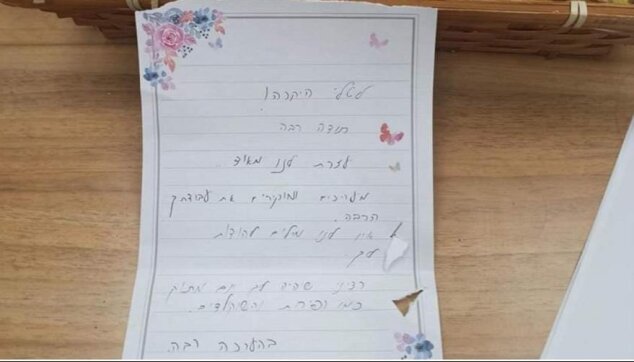 לטלי היקרה!
תודה רבה
עזרת לנו מאוד.
מעריכים ומוקירים את עבודתך
הרבה.
אין לנו מילים להודות
לך.
רצינו שיהיה לך יום מתוק
כמו הפירות והשוקולדים.
בהערכה רבה